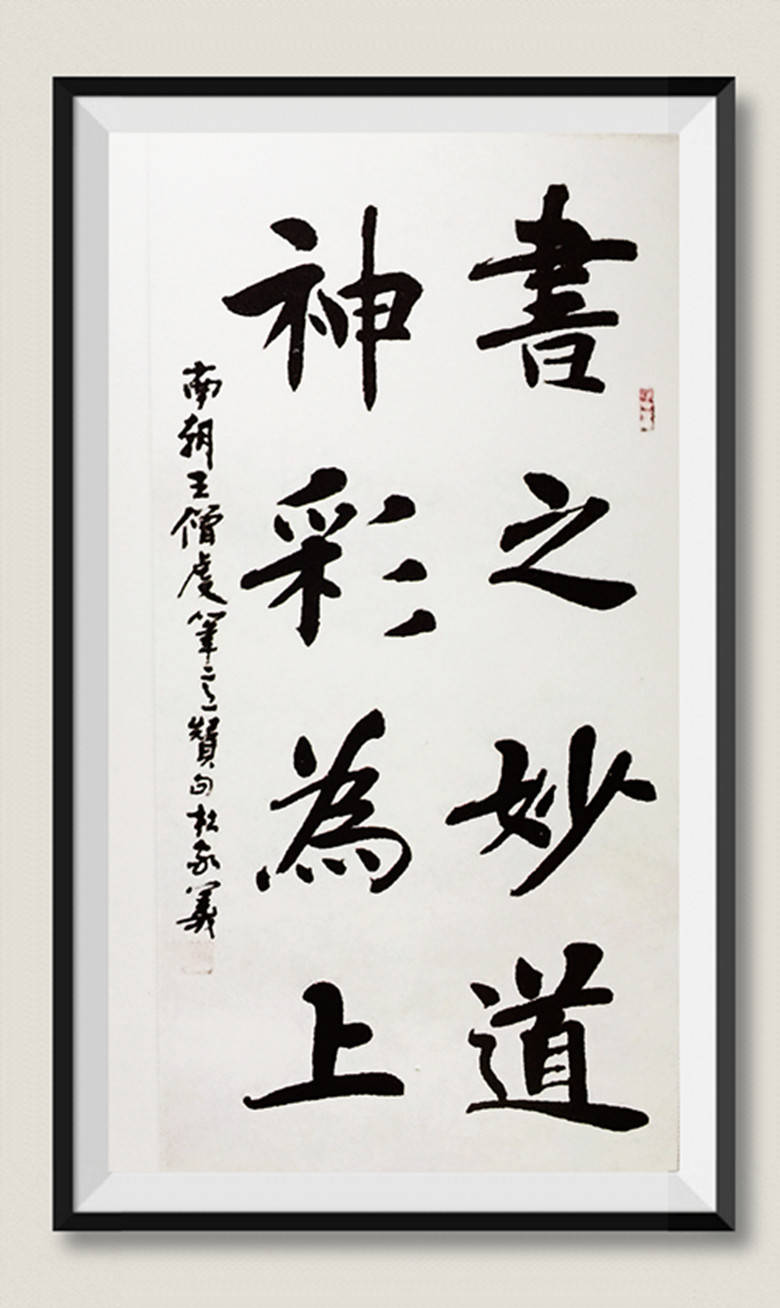 書之妙道
神彩為上
南朝王僧虔筆意贊句杜家義